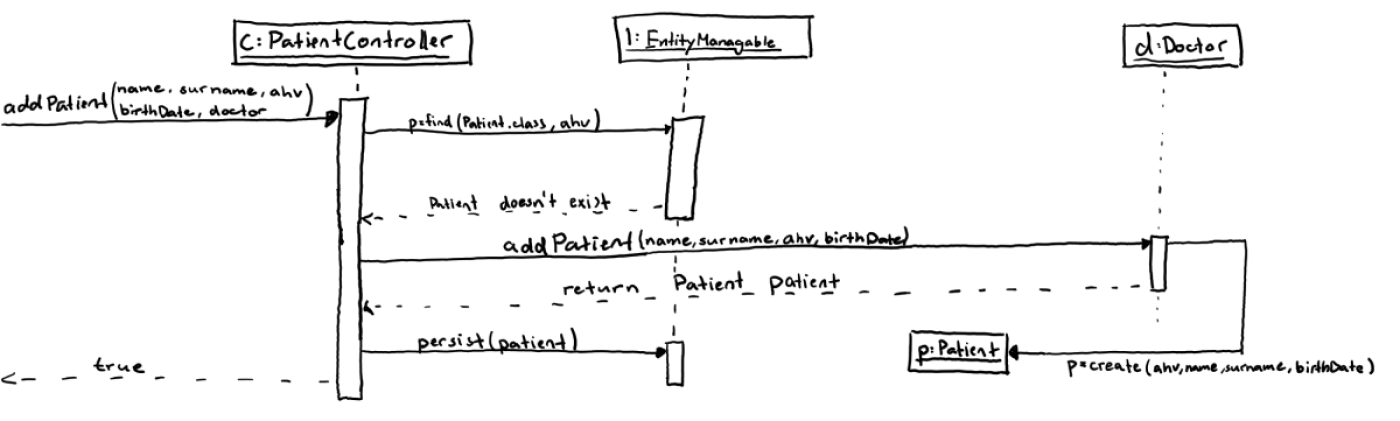 c:PatientController
l:EntityManagable
d:Doctor
addPatient(name, surname, ahv)
birthDate, doctor
p=find(Patient.class, ahv)
Patient doesn't exist
addPatient(name,surname,ahv,birthDate)
return Patient patient
persist(patient)
p:Patient
p=create(ahv,name,surname,birthDate)
true